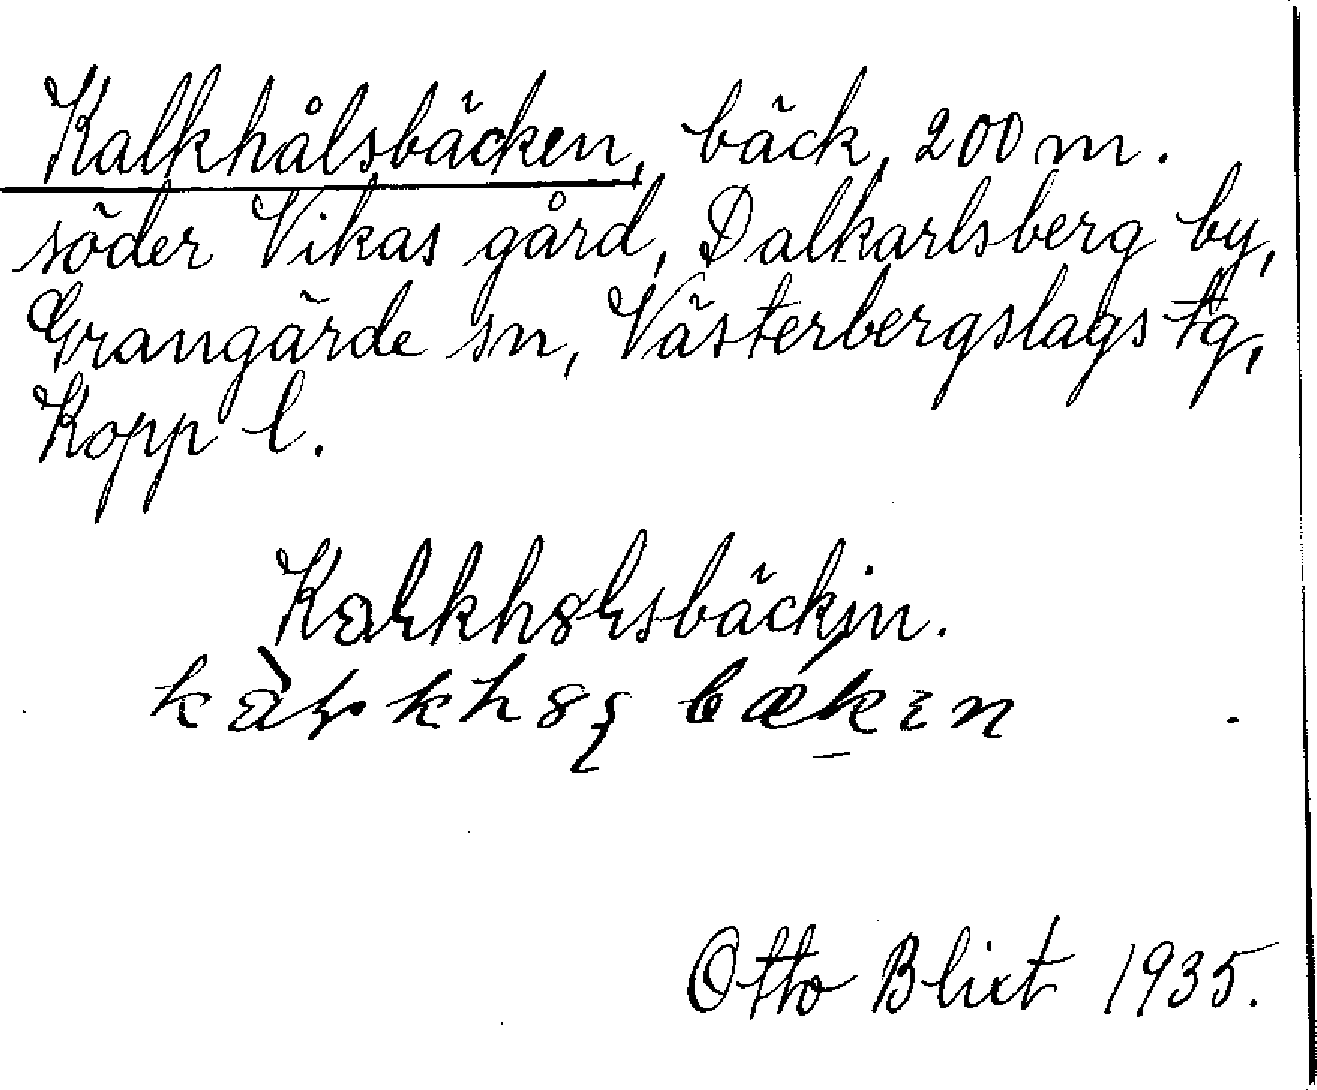 Kalkhålsbäcken, bäck, 200 m.
söder Vikas gård, Dalkarlsberg by,
Grangärde sn, Västerbergslags tg,
Kopp l.
bäckin.
Otto Blixt 1935.